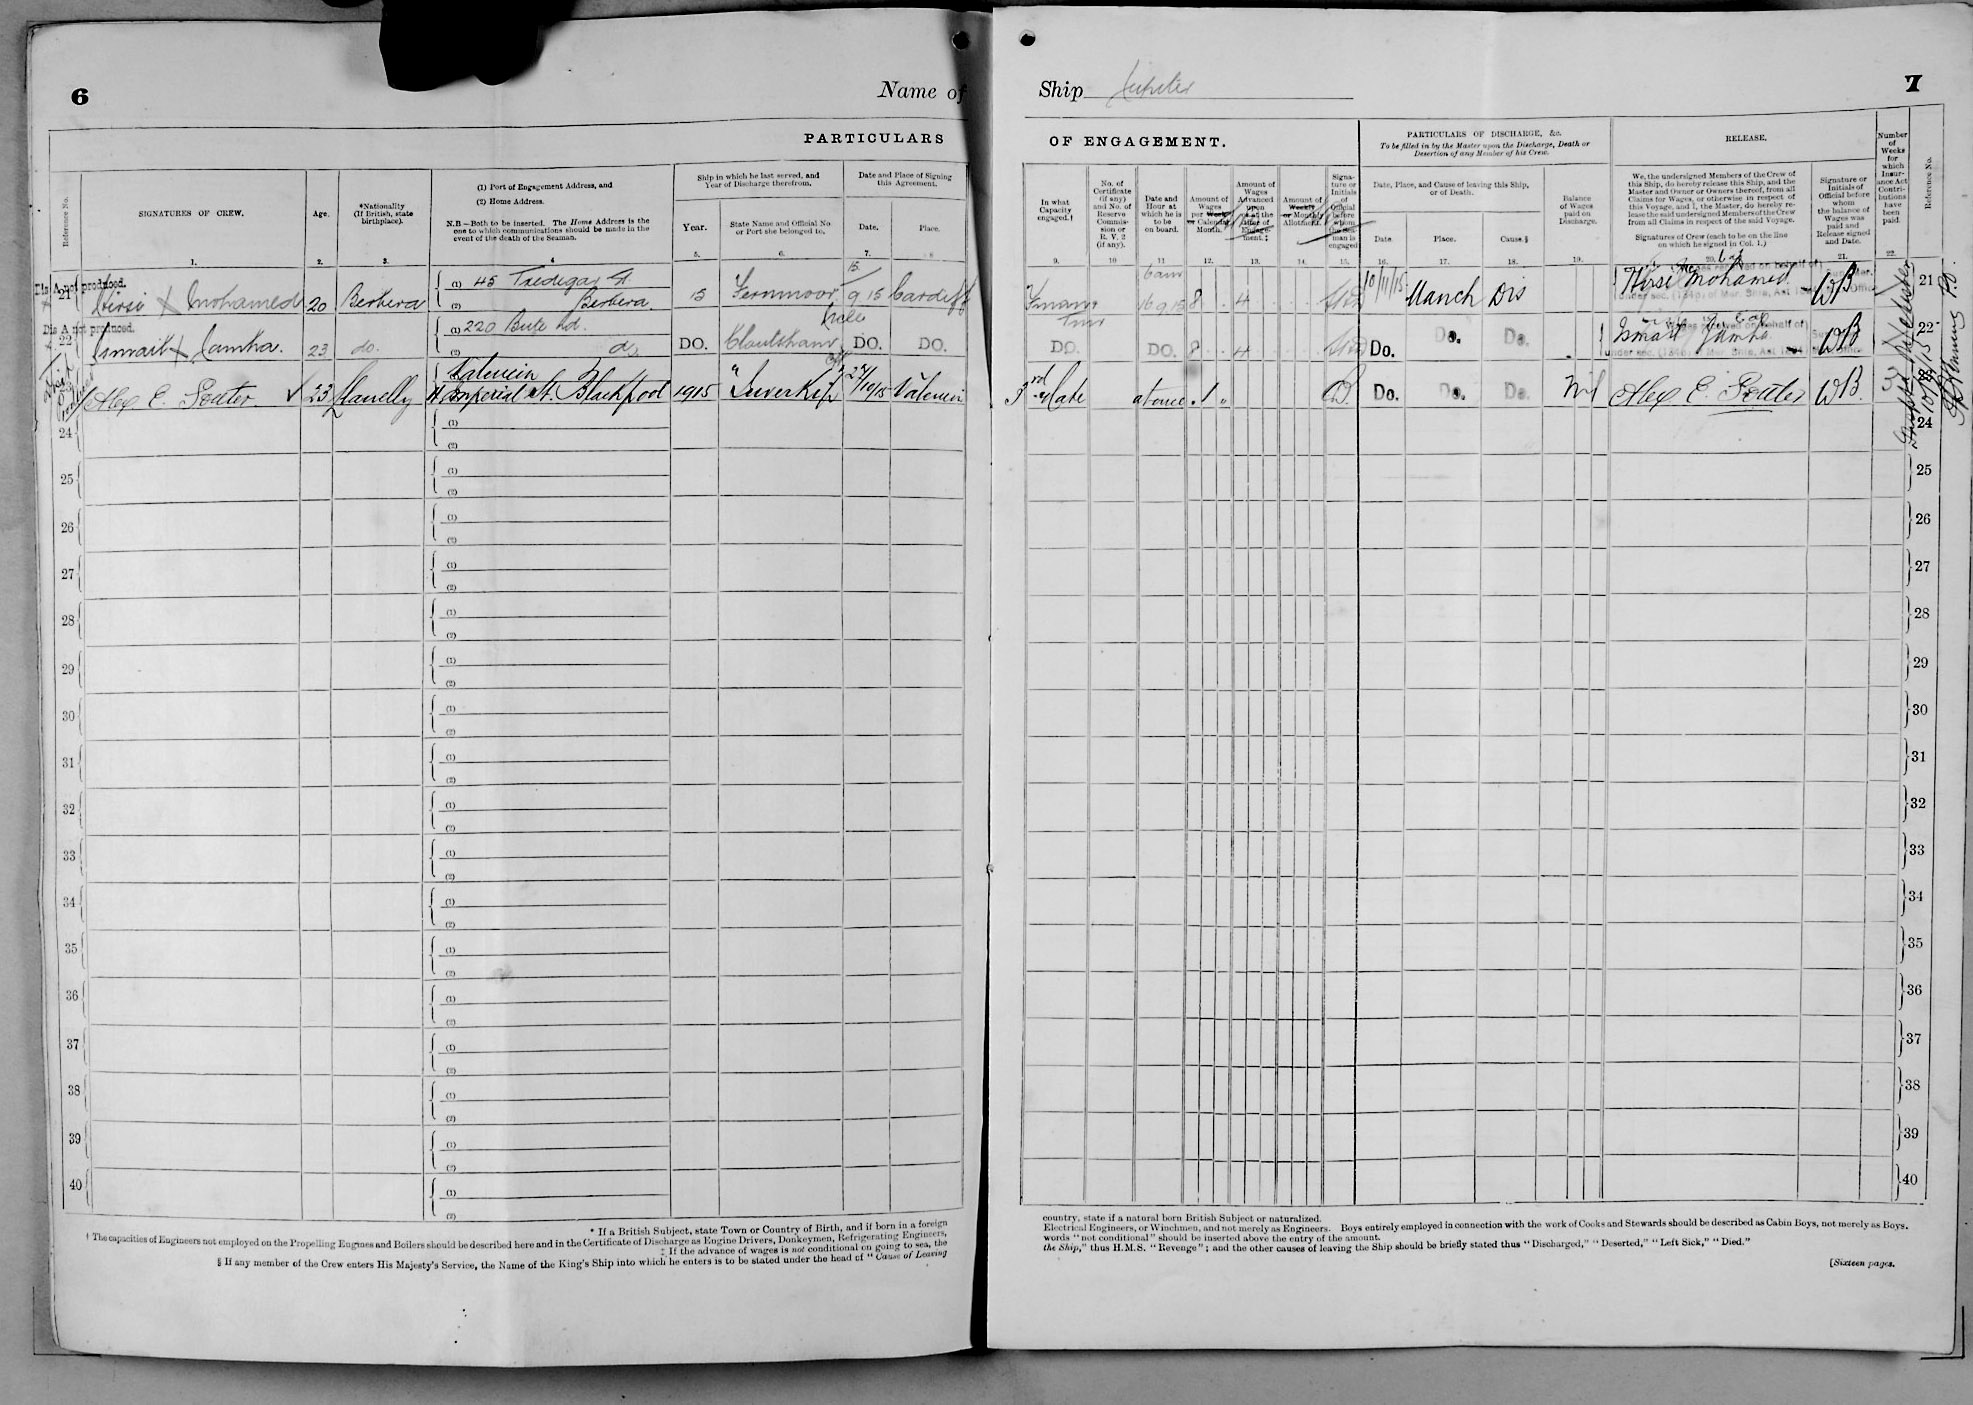 6
Name of
PARTICULARS
Reference No.
SIGNATURES OF CREW.
Age.
*Nationality
(If British, state
birthplace).
(1) Port of Engagement Address, and
(2) Home Address.
N.B.—Both to be inserted. The Home Address is the
one to which communications should be made in the
event of the death of the Seaman.
Ship in which he last served, and
Year of Discharge therefrom.
Year.
State Name and Official No.
or Port she belonged to.
Date and Place of Signing
this Agreement.
Date.
Place.
1. 2. 3. 4 5. 6. 7. 8
Dis A not produced.
21 Hersi X Mohamed 20 Berbera (1) 45 Tredegar St 15 Fernmoor 15/9 15 Cardiff
(2) Berbera
Dis A not produced.
22 Ismail X Jamha. 23 do. (1) 220 Bute Rd. DO. DO. DO.
(2) do
Alex E. Souter 23 Llanelly Valencia 1915 "Inverkip" 27/10/15 Valencia
Imperial St. Blackpool
24 (1)
(2)
25 (1)
(2)
26 (1)
(2)
27 (1)
(2)
28 (1)
(2)
29 (1)
(2)
30 (1)
(2)
31 (1)
(2)
32 (1)
(2)
33 (1)
(2)
34 (1)
(2)
35 (1)
(2)
36 (1)
(2)
37 (1)
(2)
38 (1)
(2)
39 (1)
(2)
40 (1)
(2)
* If a British Subject, state Town or Country of Birth, and if born in a foreign
† The capacities of Engineers not employed on the Propelling Engines and Boilers should be described here and in the Certificate of Discharge as Engine Drivers, Donkeymen, Refrigerating Engineers,
‡ If the advance of wages is not conditional on going to sea, the
§ If any member of the Crew enters His Majesty's Service, the Name of the King's Ship into which he enters is to be stated under the head of "Cause of Leaving
Ship
7
OF ENGAGEMENT.
PARTICULARS OF DISCHARGE, &c.
To be filled in by the Master upon the Discharge, Death or
Desertion of any Member of his Crew.
RELEASE.
Number
of
Weeks
for
which
Insur-
ance Act
Contri-
butions
have
been
paid.
Reference No.
In what
Capacity
engaged.†
No. of
Certificate
(if any)
and No. of
Reserve
Commis-
sion or
R. V. 2
(if any).
Date and
Hour at
which he is
to be
on board.
Amount of
Wages
per Week
or Calendar
Month.
Amount of
Wages
Advanced
upon
or at the
time of
Engage-
ment.‡
Amount of
Weekly
or Monthly
Allotment.
Signa-
ture or
Initials
of
Official
before
whom
the Sea-
man is
engaged
Date, Place, and Cause of leaving this Ship,
or of Death.
Date.
Place.
Cause.§
Balance
of Wages
paid on
Discharge.
We, the undersigned Members of the Crew of
this Ship, do hereby release this Ship, and the
Master and Owner or Owners thereof, from all
Claims for Wages, or otherwise in respect of
this Voyage, and I, the Master, do hereby re-
lease the said undersigned Members of the Crew
from all Claims in respect of the said Voyage.
Signatures of Crew (each to be on the line
on which he signed in Col. 1.)
Signature or
Initials of
Official before
whom
the balance of
Wages was
paid and
Release signed
and Date.
9. 10 11 12. 13. 14. 15. 16. 17. 18. 19. 20. 21. 22.
6am
16 9 15 8 4 10/11/15 Manch Dis Hersi Mohamed WB 21
DO. DO. 8 4 Do. Do. Do. Ismail Jamha WB 22
3rd Mate at once 1 Do. Do. Do. Nil Alex E. Souter WB
24
25
26
27
28
29
30
31
32
33
34
35
36
37
38
39
40
country, state if a natural born British Subject or naturalized.
Electrical Engineers, or Winchmen, and not merely as Engineers. Boys entirely employed in connection with the work of Cooks and Stewards should be described as Cabin Boys, not merely as Boys.
words "not conditional" should be inserted above the entry of the amount.
the Ship," thus H.M.S. "Revenge"; and the other causes of leaving the Ship should be briefly stated thus "Discharged," "Deserted," "Left Sick," "Died."
[Sixteen pages.